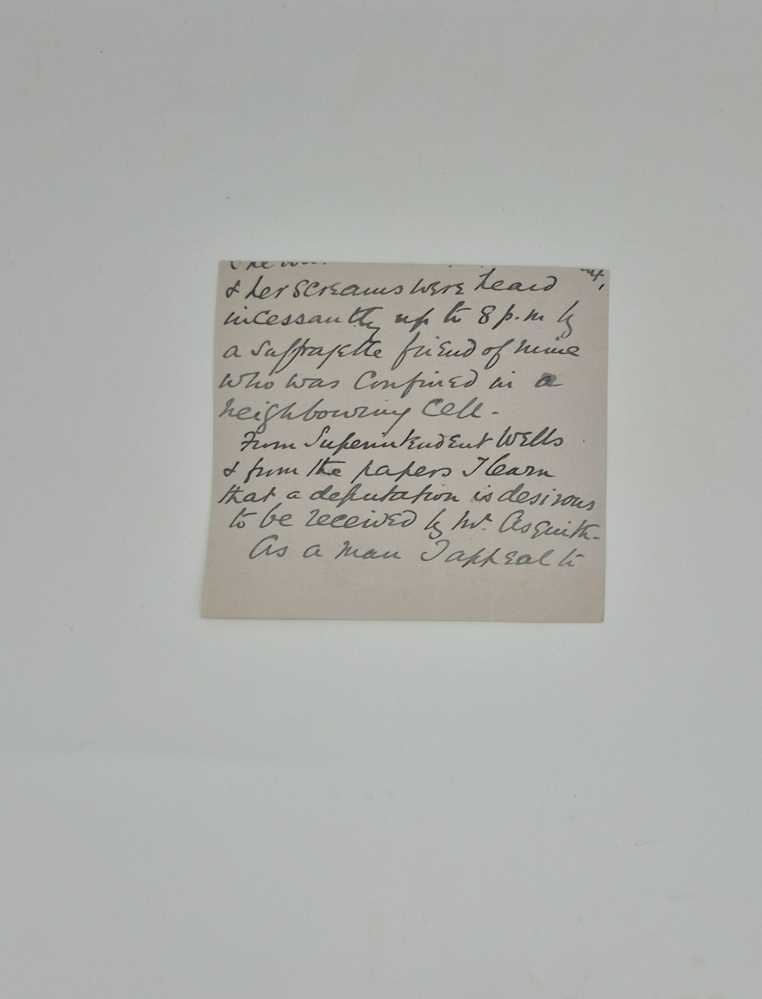 & her screams were heard
incessantly up to 8 p.m by
a Suffragette friend of mine
who was confined in a
neighbouring cell -
From Superintendent Wells
& from the papers I learn
that a deputation is desirous
to be received by Mr. Asquith -
As a man I appeal to